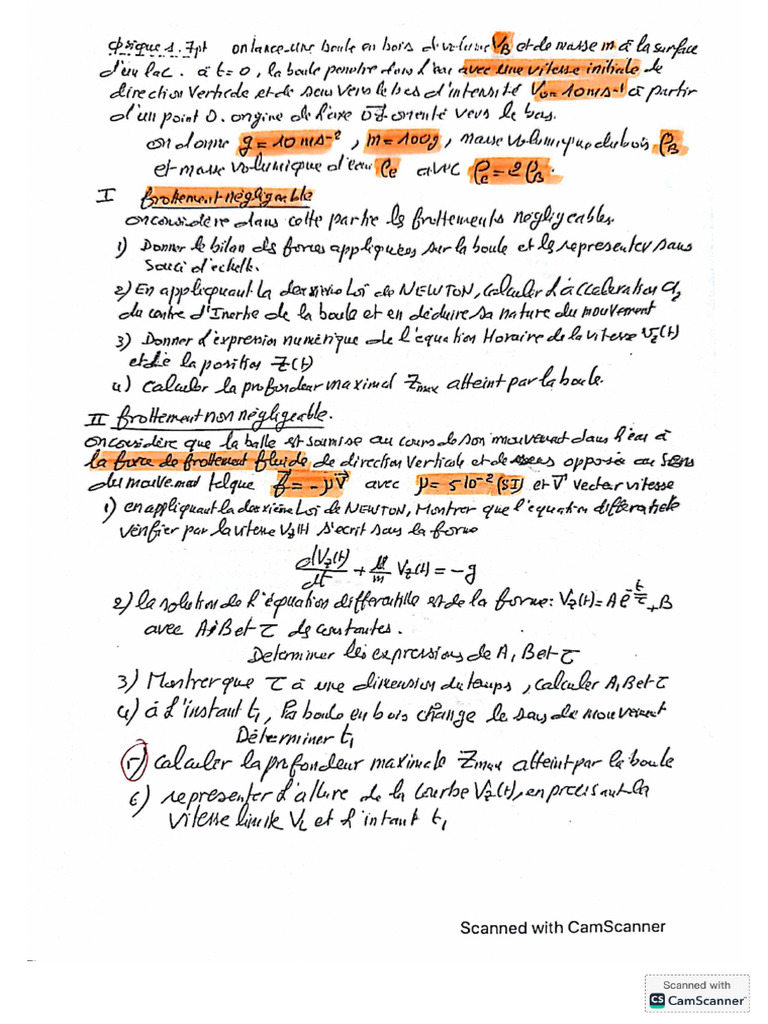 physique 1. 7pt on lance une boule en bois de volume V_B et de masse m à la surface
d'un lac. à t=0, la boule penetre dans l'eau avec une vitesse initiale de
direction Verticale et de sens vers le bas d'intensité V₀=10ms⁻¹ à partir
d'un point O. origine de l'axe OZ orienté vers le bas.
on donne g=10ms⁻², m=100g, masse volumique du bois ρ_B
et masse volumique d'eau ρ_e avec ρ_e=2ρ_B.
I frottement négligeable
on considère dans cette partie les frottements negligeables.
1) Donner le bilan des forces appliquées sur la boule et les representer sans
souci d'échelle.
2) En appliquant la deuxième Loi de NEWTON, calculer l'accceleration a_z
du centre d'Inertie de la boule et en déduire sa nature du mouvement
3) Donner l'expression numérique de l'équation Horaire de la vitesse V_z(t)
et de la position Z(t)
4) calculer la profondeur maximal Z_max atteint par la boule.
II frottement non négligeable.
on considère que la balle est soumise au cours de son mouvement dans l'eau à
la force de frottement fluide de direction Verticale et de sens opposée au sens
du mouvement telque f⃗=-μV⃗ avec μ=5 10⁻²(SI) et V⃗ vecteur vitesse
1) en appliquant la deuxième Loi de NEWTON, Montrer que l'équation différentielle
vérifier par la vitesse V_z(t) s'ecrit sous la forme
dV_z(t)/dt + μ/m V_z(t) = -g
2) la solution de l'équation differentille est de la forme: V_z(t)=A e^(-t/τ)+B
avec A, B et τ des constantes.
Determiner les expressions de A, B et τ
3) Montrer que τ à une dimension du temps, calculer A, B et τ
4) à l'instant t₁, la boule en bois change le sens du mouvement
Déterminer t₁
5) calculer la profondeur maximale Z_max atteint par la boule
6) representer l'allure de la courbe V_z(t), en precisant la
vitesse limite V_L et l'intant t₁
Scanned with CamScanner
Scanned with
CS CamScanner